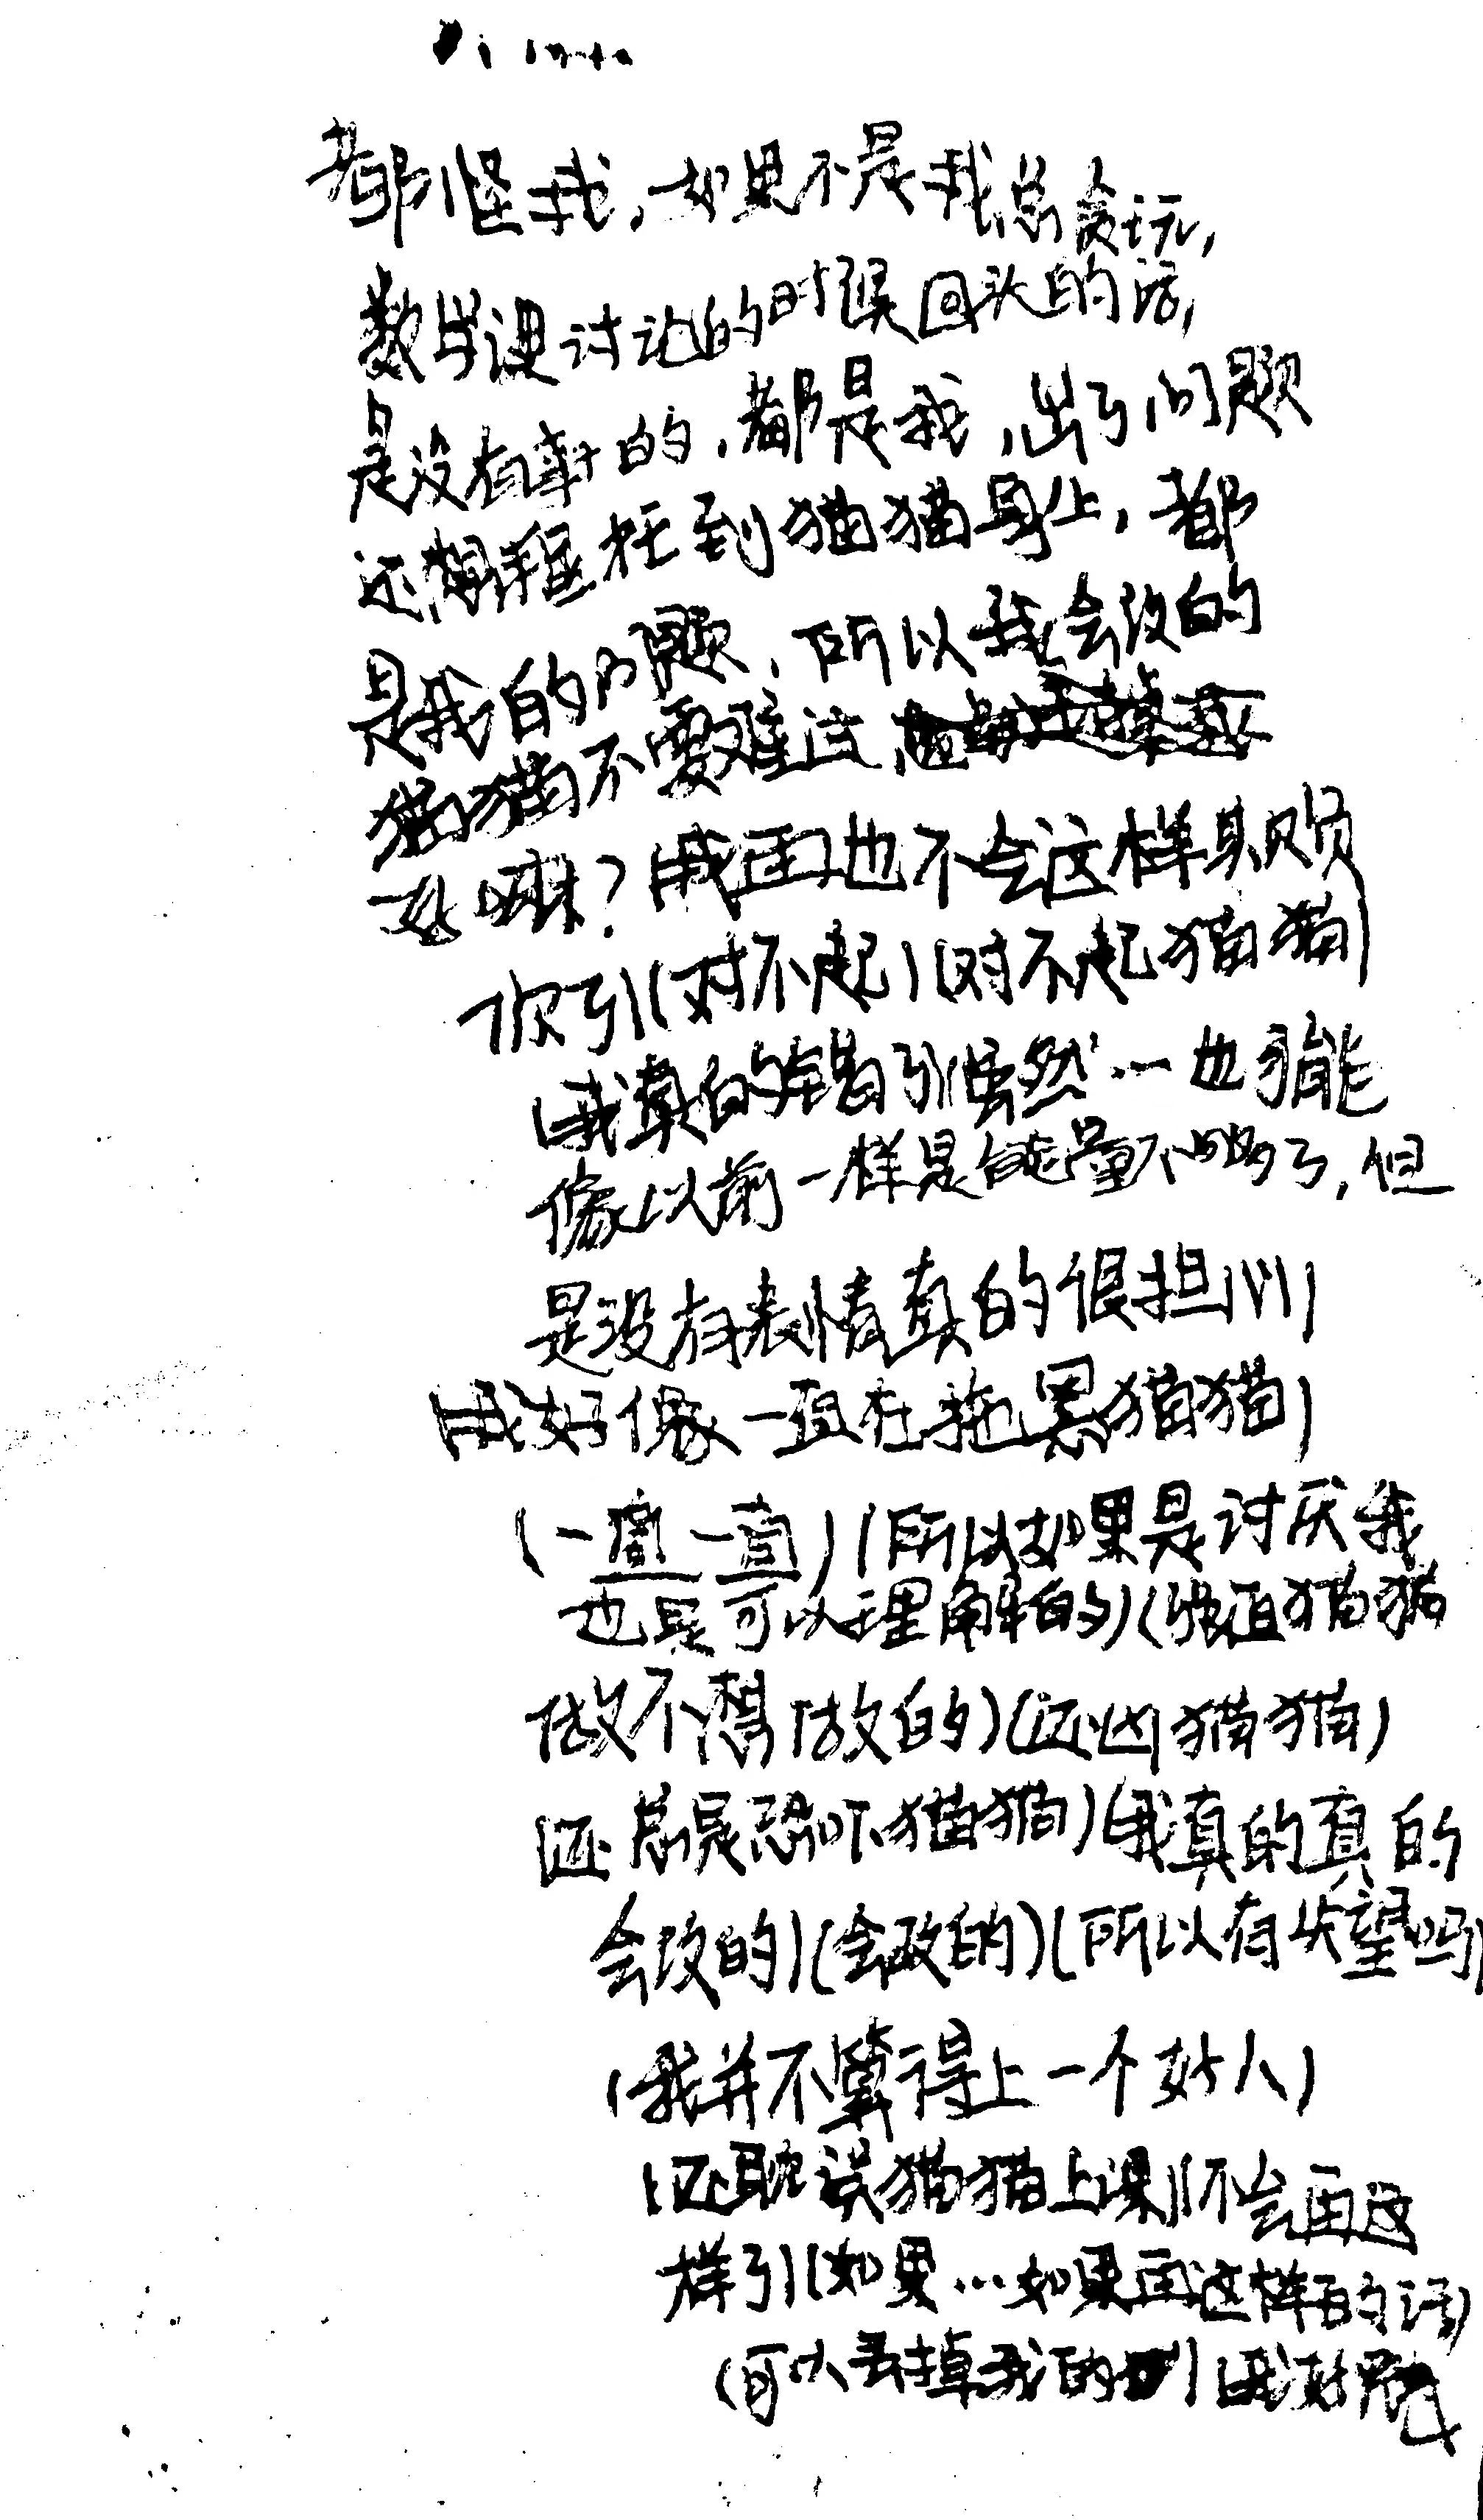 都怪我，如果不是我总贪玩，
数学课讨论的时候回头的话，
是没有事的，都是我，出了问题
还想推托到猫猫身上，都
是我的问题，所以我会改的
猫猫不要难过
好嘛？(我再也不会这样欺负
你了)(对不起)(对不起猫猫)
(我真的错了)(虽然…也可能
像以前一样是能量不够了，但
是没有表情真的很担心)
(我好像一直在拖累猫猫)
(一直一直)(所以如果是讨厌我
也是可以理解的)(强迫猫猫
做不想做的)(还凶猫猫)
(还总是恐吓猫猫)(我真的真的
会改的)(会改的)(所以有失望吗)
(我并不算得上一个好人)
(还耽误猫猫上课)(不会再这
样了)(如果…如果再这样的话)
(可以丢掉我的)(我好